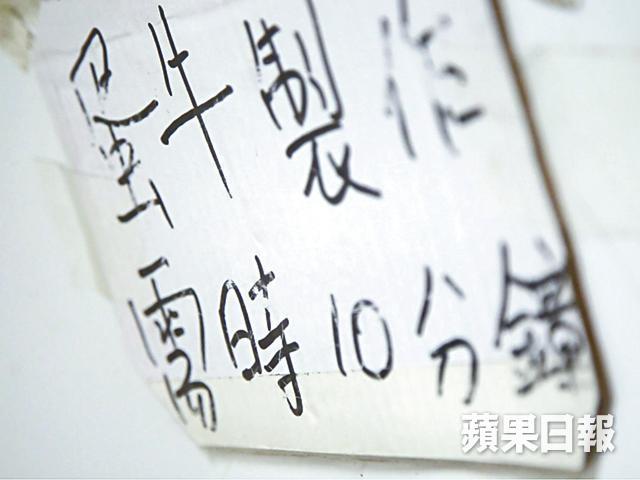 蛋牛製作
需時10分鐘
蘋果日報